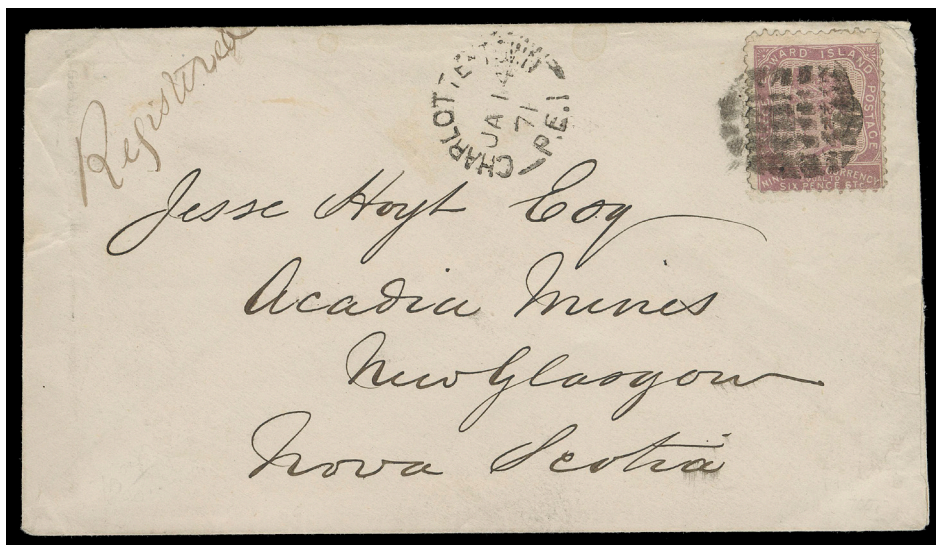 Registered
CHARLOTTETOWN
JA 14
71
P.E.I
WARD ISLAND POSTAGE
RRENCY
SIX PENCE STG
Jesse Hoyt Esq
Acadia Mines
New Glasgow
Nova Scotia